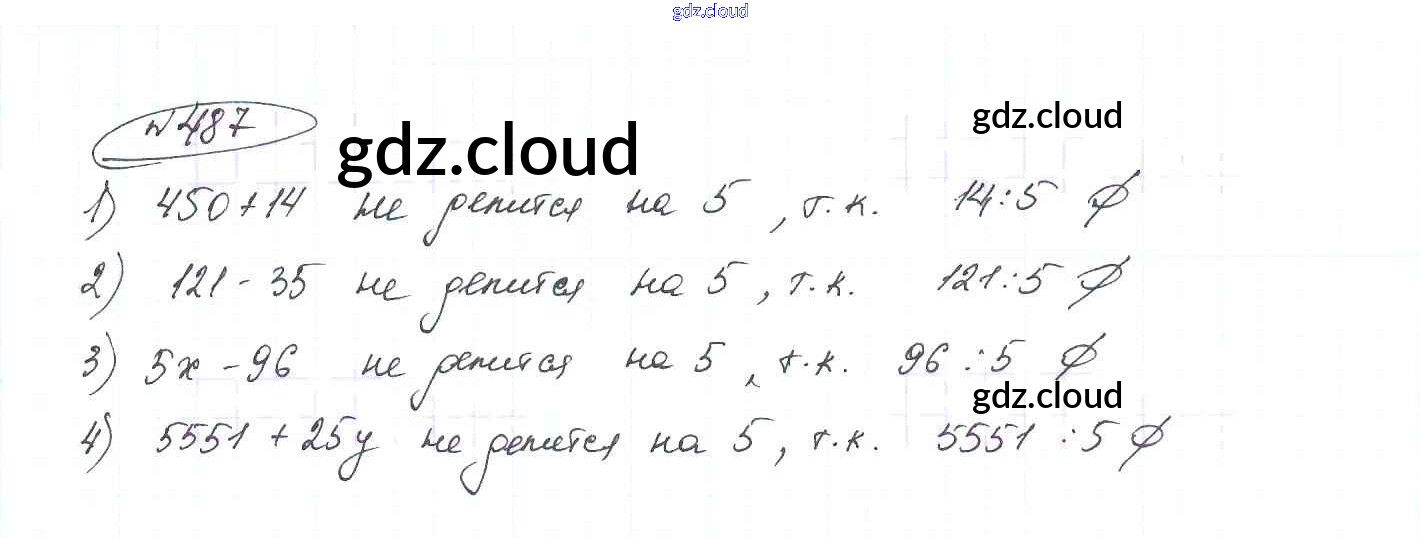 gdz.cloud
№487
gdz.cloud
gdz.cloud
1) 450+14 не делится на 5, т.к. 14:5 ∅
2) 121-35 не делится на 5, т.к. 121:5 ∅
3) 5x-96 не делится на 5, т.к. 96:5 ∅
gdz.cloud
4) 5551+25y не делится на 5, т.к. 5551:5 ∅